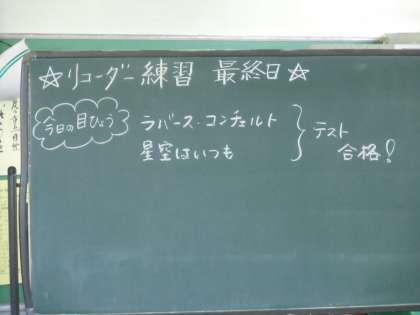 ☆リコーダー練習 最終日☆
今日の目ひょう
ラバース・コンチェルト
星空はいつも
テスト
合格!